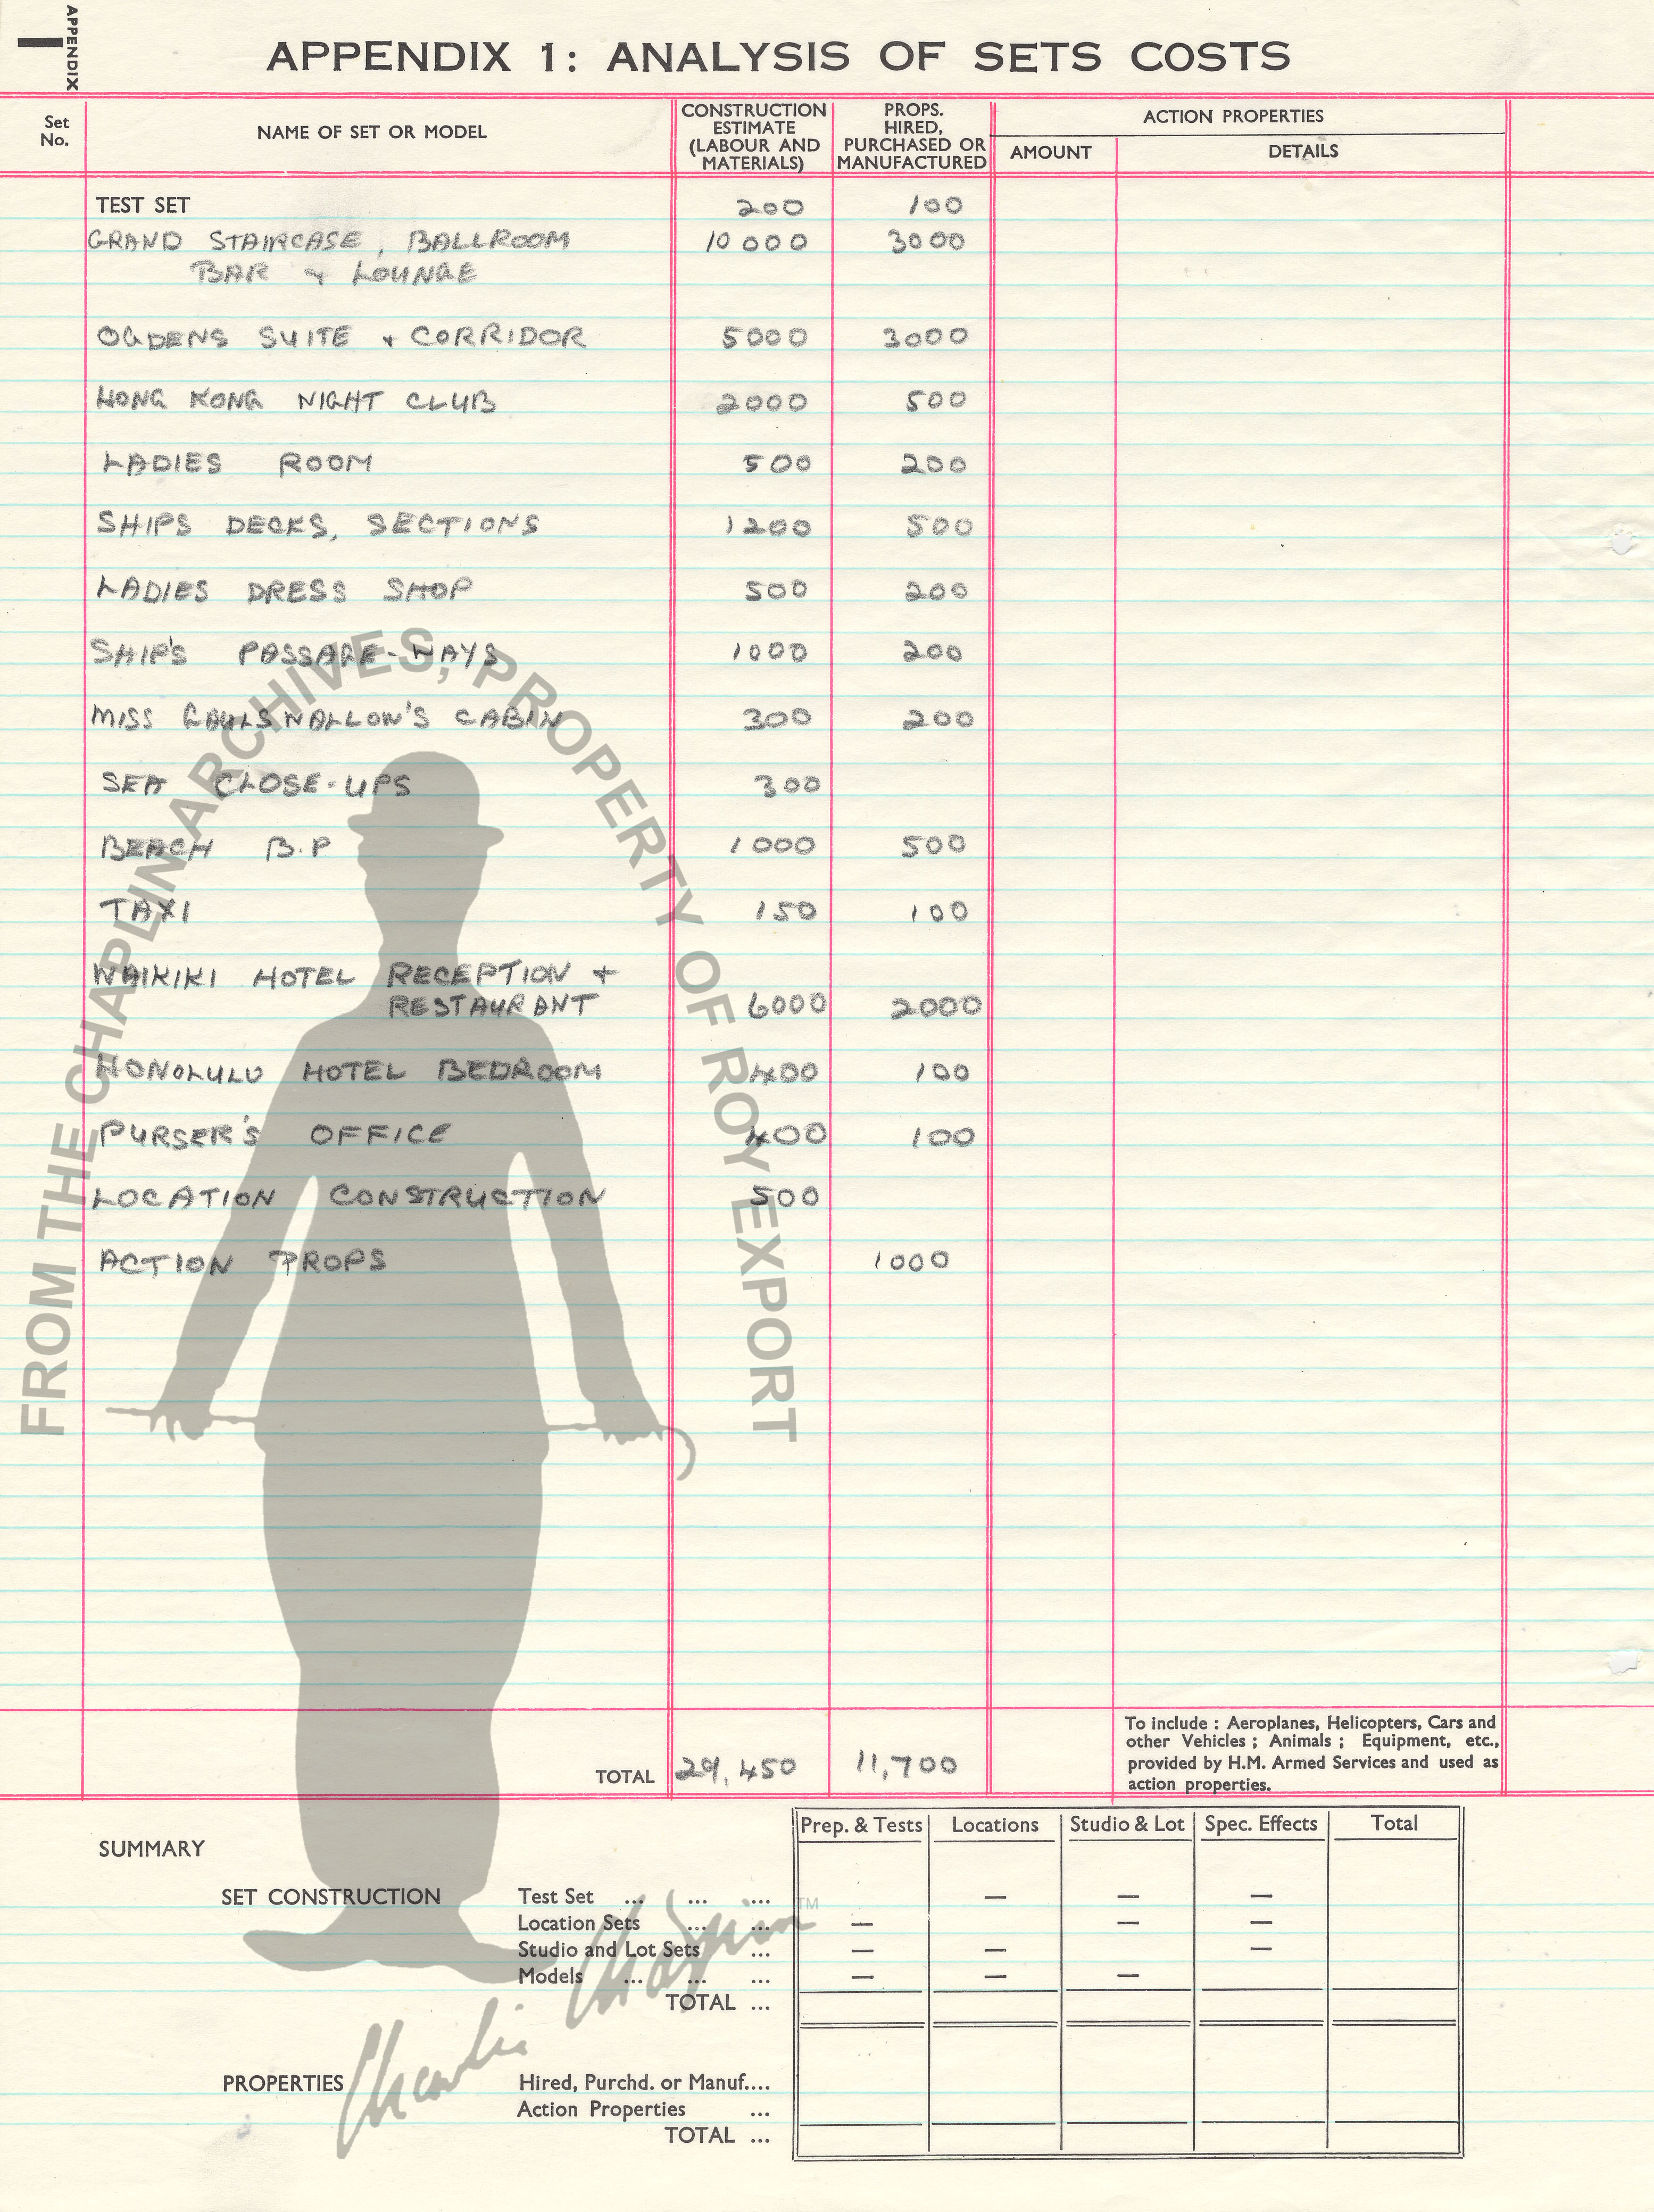 APPENDIX 1
APPENDIX 1: ANALYSIS OF SETS COSTS
Set No.
NAME OF SET OR MODEL
CONSTRUCTION ESTIMATE (LABOUR AND MATERIALS)
PROPS. HIRED, PURCHASED OR MANUFACTURED
ACTION PROPERTIES
AMOUNT DETAILS
TEST SET 200 100
GRAND STAIRCASE, BALLROOM 10000 3000
BAR & LOUNGE
OGDENS SUITE + CORRIDOR 5000 3000
HONG KONG NIGHT CLUB 2000 500
LADIES ROOM 500 200
SHIPS DECKS, SECTIONS 1200 500
LADIES DRESS SHOP 500 200
SHIP'S PASSAGE-WAYS 1000 200
MISS GAULSWALLOW'S CABIN 300 200
SEA CLOSE-UPS 300
BEACH B.P 1000 500
TAXI 150 100
WAIKIKI HOTEL RECEPTION +
RESTAURANT 6000 2000
HONOLULU HOTEL BEDROOM 400 100
PURSER'S OFFICE 400 100
LOCATION CONSTRUCTION 500
ACTION PROPS 1000
TOTAL 29,450 11,700
To include : Aeroplanes, Helicopters, Cars and
other Vehicles ; Animals ; Equipment, etc.,
provided by H.M. Armed Services and used as
action properties.
Prep. & Tests Locations Studio & Lot Spec. Effects Total
SUMMARY
SET CONSTRUCTION Test Set ... ... ... — — —
Location Sets ... ... — — —
Studio and Lot Sets ... — — —
Models ... ... ... — — —
TOTAL ...
PROPERTIES Hired, Purchd. or Manuf....
Action Properties ...
TOTAL ...
FROM THE CHAPLIN ARCHIVES, PROPERTY OF ROY EXPORT
Charlie Chaplin TM